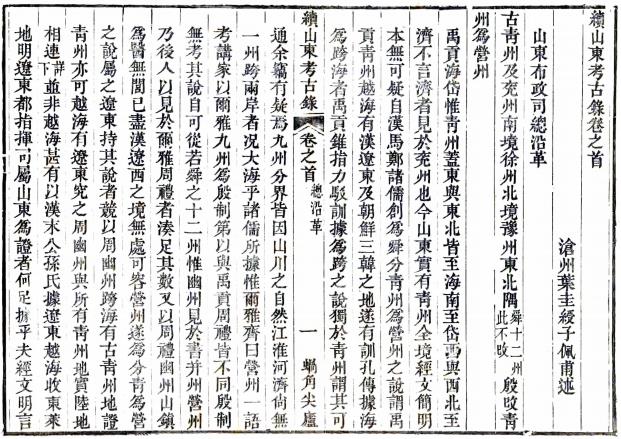 續山東考古錄卷之首
滄州葉圭綬子佩甫述
山東布政司總沿革
古青州及兗州南境徐州北境豫州東北隅舜十二州殷改青
此不改
州爲營州
禹貢海岱惟青州蓋東與東北皆至海南至岱西與西北至
濟不言濟者見於兗州也今山東實有青州全境經文簡明
本無可疑自漢馬鄭諸儒創爲舜分青州爲營州之說謂禹
貢青州越海有漢遼東及朝鮮三韓之地遂有訓孔傳據海
爲跨海者禹貢錐指力駁訓據爲跨之說獨於青州謂其可
通余竊有疑焉九州分界皆因山川之自然江淮河濟尚無
續山東考古錄
卷之首
總沿革
一
蝸角尖廬
一州跨兩岸者况大海乎諸儒所據惟爾雅齊曰營州一語
考講家以爾雅九州爲殷制第以與禹貢周禮皆不同殷制
無考其說自可從若舜之十二州惟幽州見於書并州營州
乃後人以見於爾雅周禮者湊足其數又以周禮幽州山鎮
爲醫無閭已盡漢遼西之境無處可容營州遂爲分青爲營
之說屬之遼東持其說者競以周幽州跨海有古青州地證
青州亦可越海有遼東究之周幽州與所有青州地實陸地
相連詳下並非越海甚有以漢末公孫氏據遼東越海收東萊
地明遼東都指揮司屬山東爲證者何足據乎夫經文明言